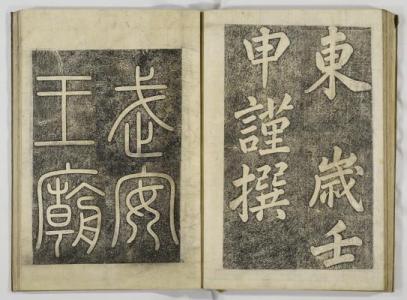 東歲壬
申謹撰
武安
王廟